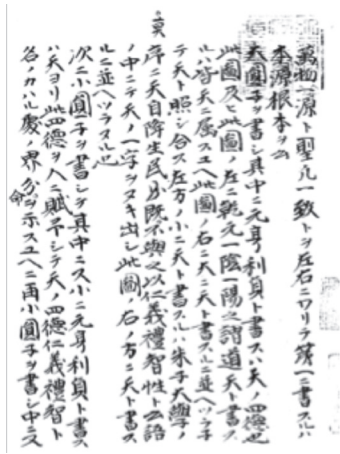 萬物一源ト聖凡一致トヲ左右ニワリテ第一ニ書スルハ
本源根本ヲ云
大圓子ヲ書シ其中ニ元亨利貞ト書スハ天ノ四德也
此圖及ヒ此圖ノ左ニ乾元一陰一陽之謂道天ト書ス
ルハ皆天ニ属スユヘ此圖ノ右ニ大ニ天ト書スルニ並ヘツラ子
テ天ト照シ合ス左方ノ小ニ天ト書スルハ朱子大學ノ
序ニ天自降生民則既莫不與之以仁義禮智性ト云語
ノ中ニテ天ノ一字ヲヌキ出シ此圖ノ右ノ方ニ天ト書ス
ルニ並ヘツラスル也
次ニ小圓子ヲ書シテ其中ニ又小ニ元亨利貞ト書ス
ハ天ヨリ此四德ヲ人ニ賦予シテ天ノ四德仁義禮智ト
名ノカハル處ノ界分ヲ示スユヘニ再小圓子ヲ書シ中ニ又